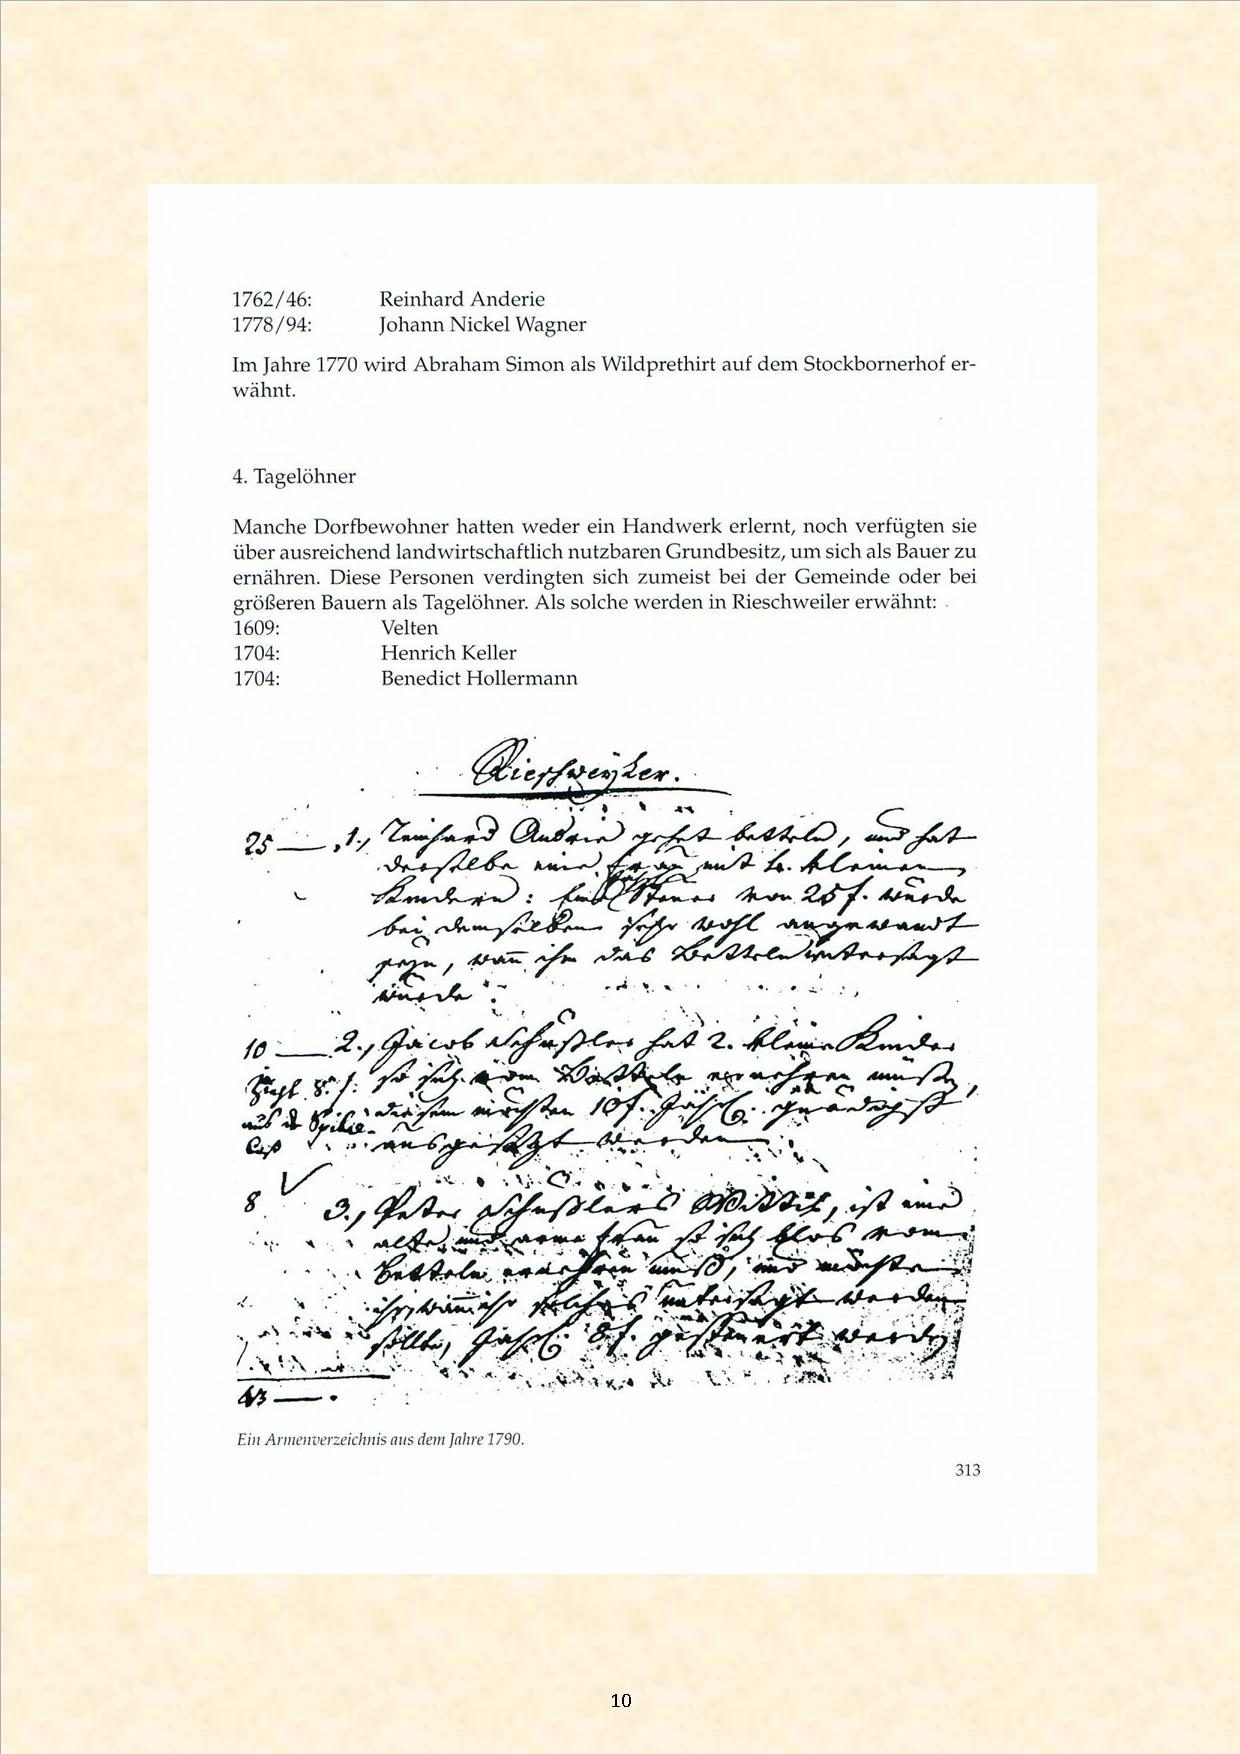 1762/46: Reinhard Anderie
1778/94: Johann Nickel Wagner
Im Jahre 1770 wird Abraham Simon als Wildprethirt auf dem Stockbornerhof er-
wähnt.
4. Tagelöhner
Manche Dorfbewohner hatten weder ein Handwerk erlernt, noch verfügten sie
über ausreichend landwirtschaftlich nutzbaren Grundbesitz, um sich als Bauer zu
ernähren. Diese Personen verdingten sich zumeist bei der Gemeinde oder bei
größeren Bauern als Tagelöhner. Als solche werden in Rieschweiler erwähnt:
1609: Velten
1704: Henrich Keller
1704: Benedict Hollermann
25 — 1., Reinhard Andrie gehet betteln, und hat
derselbe eine Frau mit kleinen
Kindern: Steuer von 25 f. würde
bei demselben sehr wohl angewandt
seyn, wann ihm das Betteln untersagt
würde.
10 — 2., Jacob Schußler hat 2. kleine Kinder
so sich vom Betteln ernähren müßen,
diesem 10 f. Jährl. gnädigst
ausgesetzt werden
8 3., Peter Schußlers Wittib, ist eine
alte und arme Frau so sich blos vom
Betteln ernähren muß, und möchte
ihr, wann ihr solches untersagt werden
sollte, Jährl. 8 f. gesteuert werden
43 —
Ein Armenverzeichnis aus dem Jahre 1790.
313
10